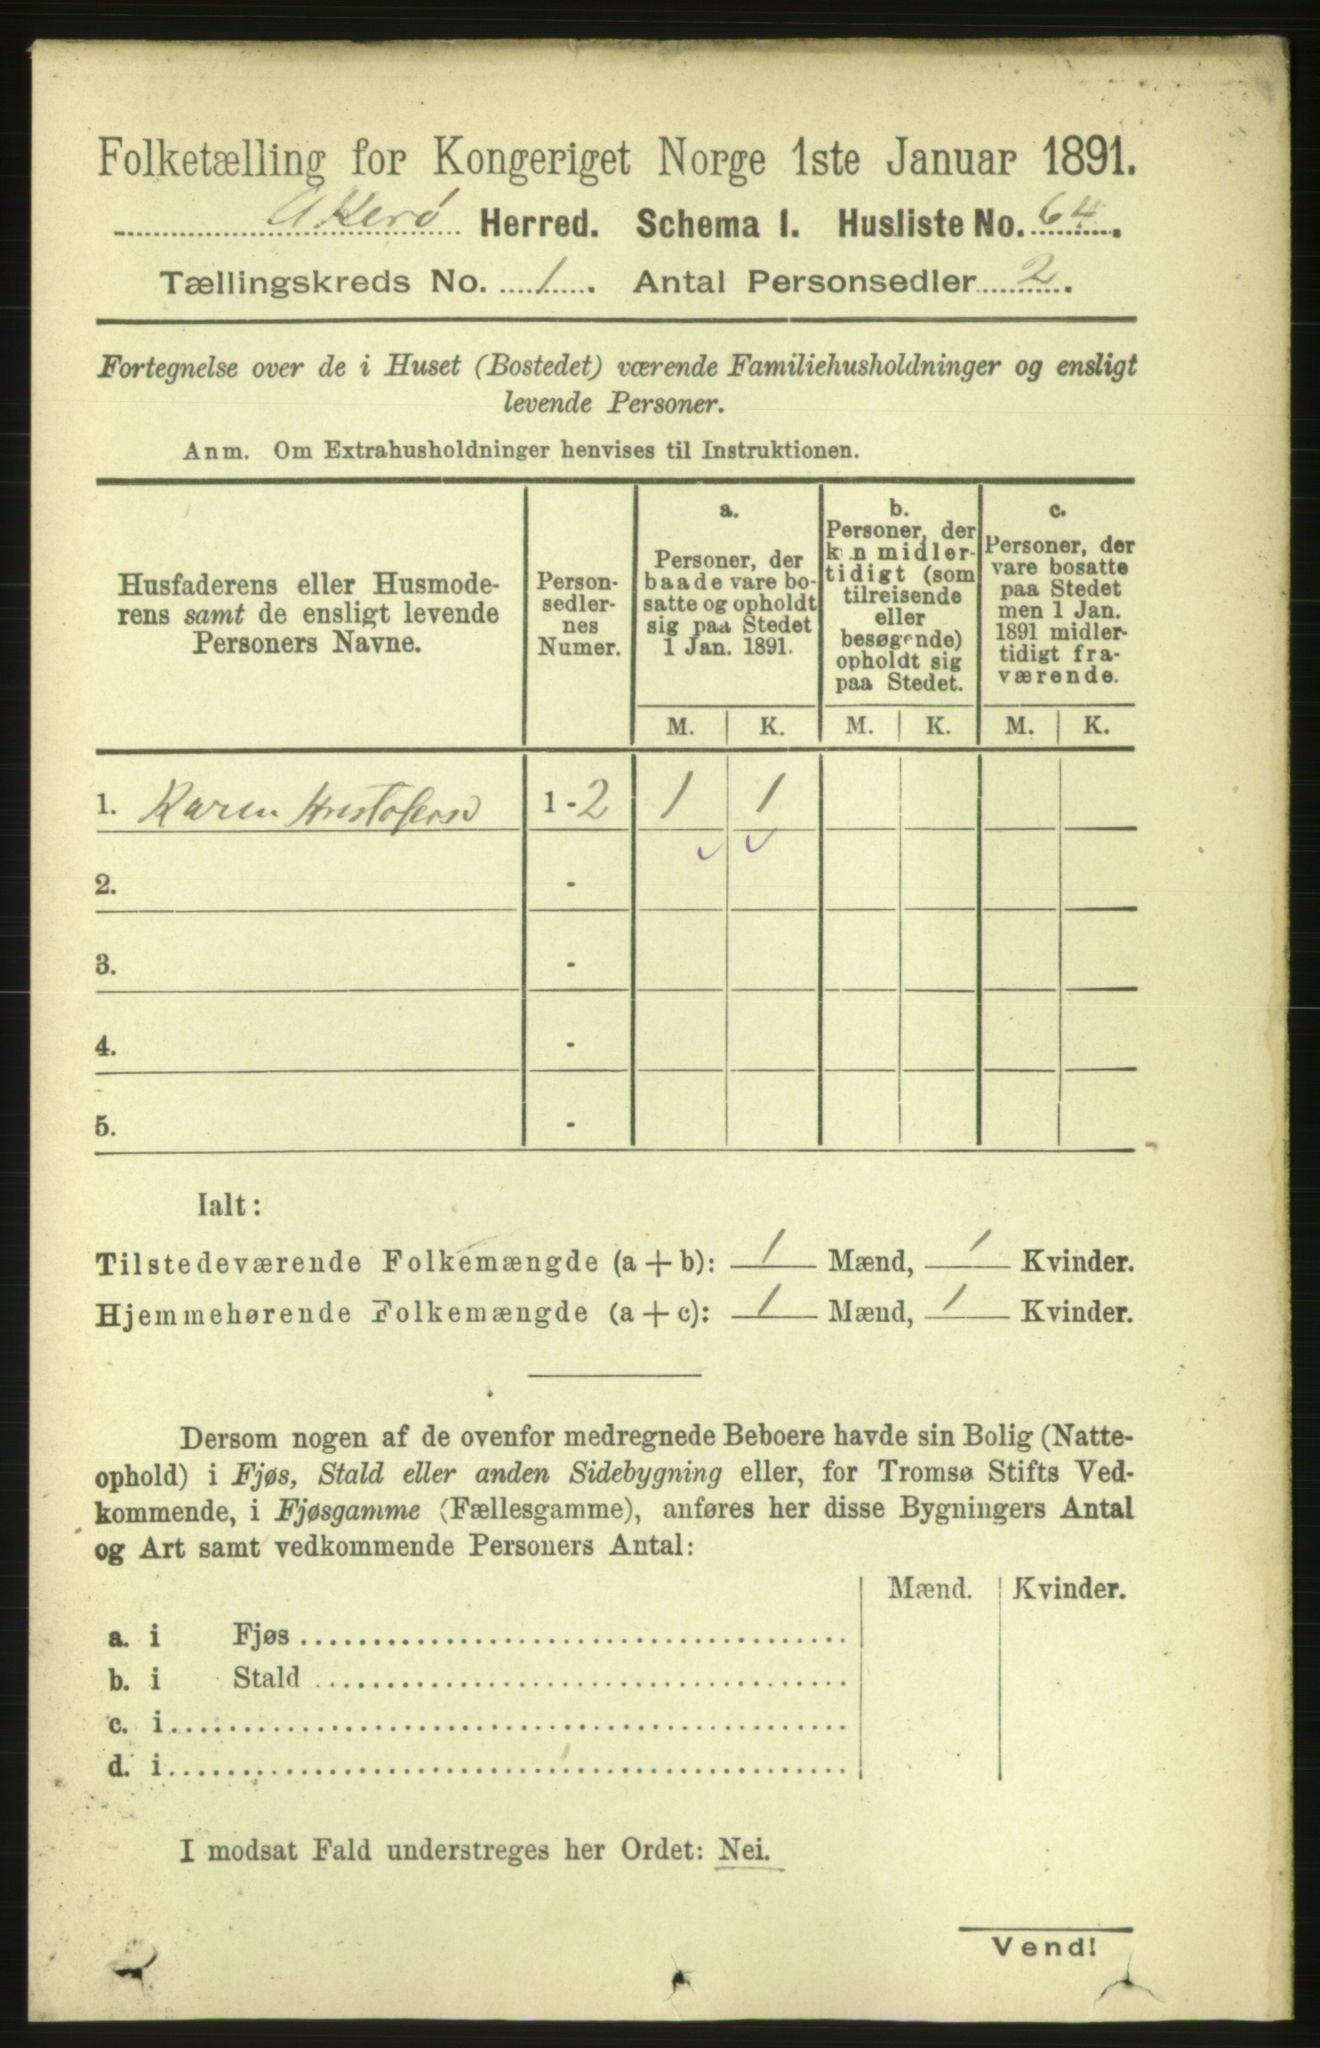 Folketælling for Kongeriget Norge 1ste Januar 1891.
Akerø Herred. Schema I. Husliste No. 64.
Tællingskreds No. 1. Antal Personsedler 2.
Fortegnelse over de i Huset (Bostedet) værende Familiehusholdninger og ensligt
levende Personer.
Anm. Om Extrahusholdninger henvises til Instruktionen.
Husfaderens eller Husmode-
rens samt de ensligt levende
Personers Navne.
Person-
sedler-
nes
Numer.
a.
Personer, der
baade vare bo-
satte og opholdt
sig paa Stedet
1 Jan. 1891.
b.
Personer, der
kun midler-
tidigt (som
tilreisende
eller
besøgende)
opholdt sig
paa Stedet.
c.
Personer, der
vare bosatte
paa Stedet
men 1 Jan.
1891 midler-
tidigt fra-
værende.
M. K. M. K. M. K.
1. Karen 1 - 2 1 1
2. -
3. -
4. -
5. -
Ialt:
Tilstedeværende Folkemængde (a + b): 1 Mænd, 1 Kvinder.
Hjemmehørende Folkemængde (a + c): 1 Mænd, 1 Kvinder.
Dersom nogen af de ovenfor medregnede Beboere havde sin Bolig (Natte-
ophold) i Fjøs, Stald eller anden Sidebygning eller, for Tromsø Stifts Ved-
kommende, i Fjøsgamme (Fællesgamme), anføres her disse Bygningers Antal
og Art samt vedkommende Personers Antal:
Mænd. Kvinder.
a. i Fjøs
b. i Stald
c. i
d. i
I modsat Fald understreges her Ordet: Nei.
Vend!